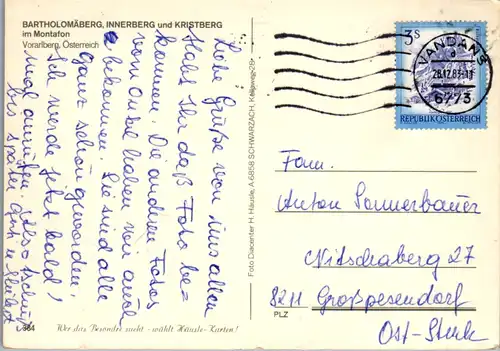 BARTHOLOMÄBERG, INNERBERG und KRISTBERG
im Montafon
Vorarlberg, Österreich
Liebe Grüße von uns allen
Habt Ihr daß Foto be=
kommen. Die anderen Fotos
von Onkel haben wir auch
bekommen. Sie sind alle
ganz schön geworden.
Ich werde jetzt bald
mal anrufen. Also tschüß
bis später.
384
Wer das Besondere sucht - wählt Häusle-Karten!
Foto Diacenter H. Häusle, A 6858 SCHWARZACH,
3S
REPUBLIK ÖSTERREICH
VANDANS
28.12.83-11
6773
Fam.
Anton Sonnerbauer
Nitschaberg 27
8211 Großpesendorf
PLZ
Ost-Stmk